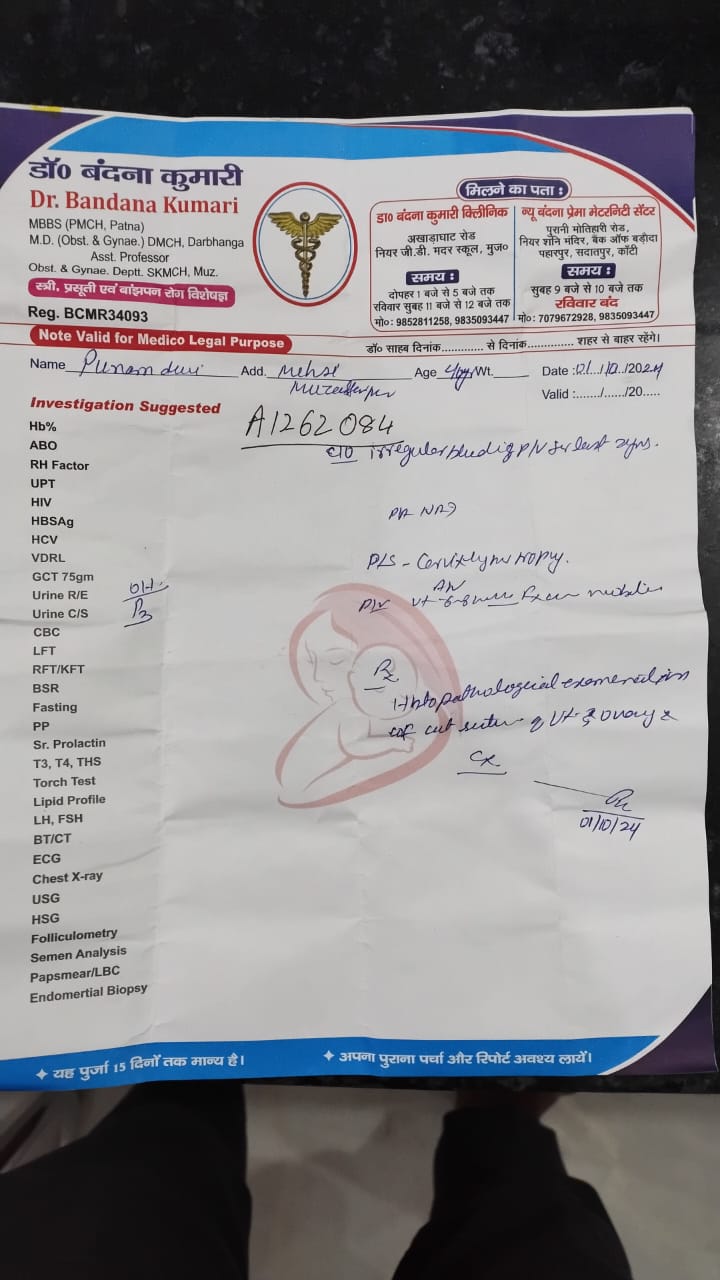 डॉ० बंदना कुमारी
Dr. Bandana Kumari
MBBS (PMCH, Patna)
M.D. (Obst. & Gynae.) DMCH, Darbhanga
Asst. Professor
Obst. & Gynae. Deptt. SKMCH, Muz.
स्त्री, प्रसूती एवं बांझपन रोग विशेषज्ञ
Reg. BCMR34093
Note Valid for Medico Legal Purpose
मिलने का पता :
डा० बंदना कुमारी क्लिीनिक
अखाड़ाघाट रोड
नियर जी.डी. मदर स्कूल, मुज०
समय :
दोपहर 1 बजे से 5 बजे तक
रविवार सुबह 11 बजे से 12 बजे तक
मो०: 9852811258, 9835093447
न्यू बंदना प्रेमा मेटरनिटी सेंटर
पुरानी मोतिहारी रोड,
नियर शनि मंदिर, बैंक ऑफ बड़ौदा
पहारपुर, सदातपुर, काँटी
समय :
सुबह 9 बजे से 10 बजे तक
रविवार बंद
मो०: 7079672928, 9835093447
डॉ० साहब दिनांक............. से दिनांक.............. शहर से बाहर रहेंगे।
Name Punam devi Add. Mehsi Age Wt. Date : /10/2024
Muzaffarpur
Valid :......./....../20.....
Investigation Suggested
A1262084
Hb%
ABO
RH Factor
UPT
HIV
HBSAg
HCV
VDRL
GCT 75gm
Urine R/E
Urine C/S
CBC
LFT
RFT/KFT
BSR
Fasting
PP
Sr. Prolactin
T3, T4, THS
Torch Test
Lipid Profile
LH, FSH
BT/CT
ECG
Chest X-ray
USG
HSG
Folliculometry
Semen Analysis
Papsmear/LBC
Endomertial Biopsy
OH.
P3
C/O irregular bleeding P/V for last
P/A NAD
P/S - Cervix hypertrophy.
P/V
Rx
Histopathological examination
of cut section of Ut & ovary &
Cx
01/10/24
यह पुर्जा 15 दिनों तक मान्य है।
अपना पुराना पर्चा और रिपोर्ट अवश्य लायें।